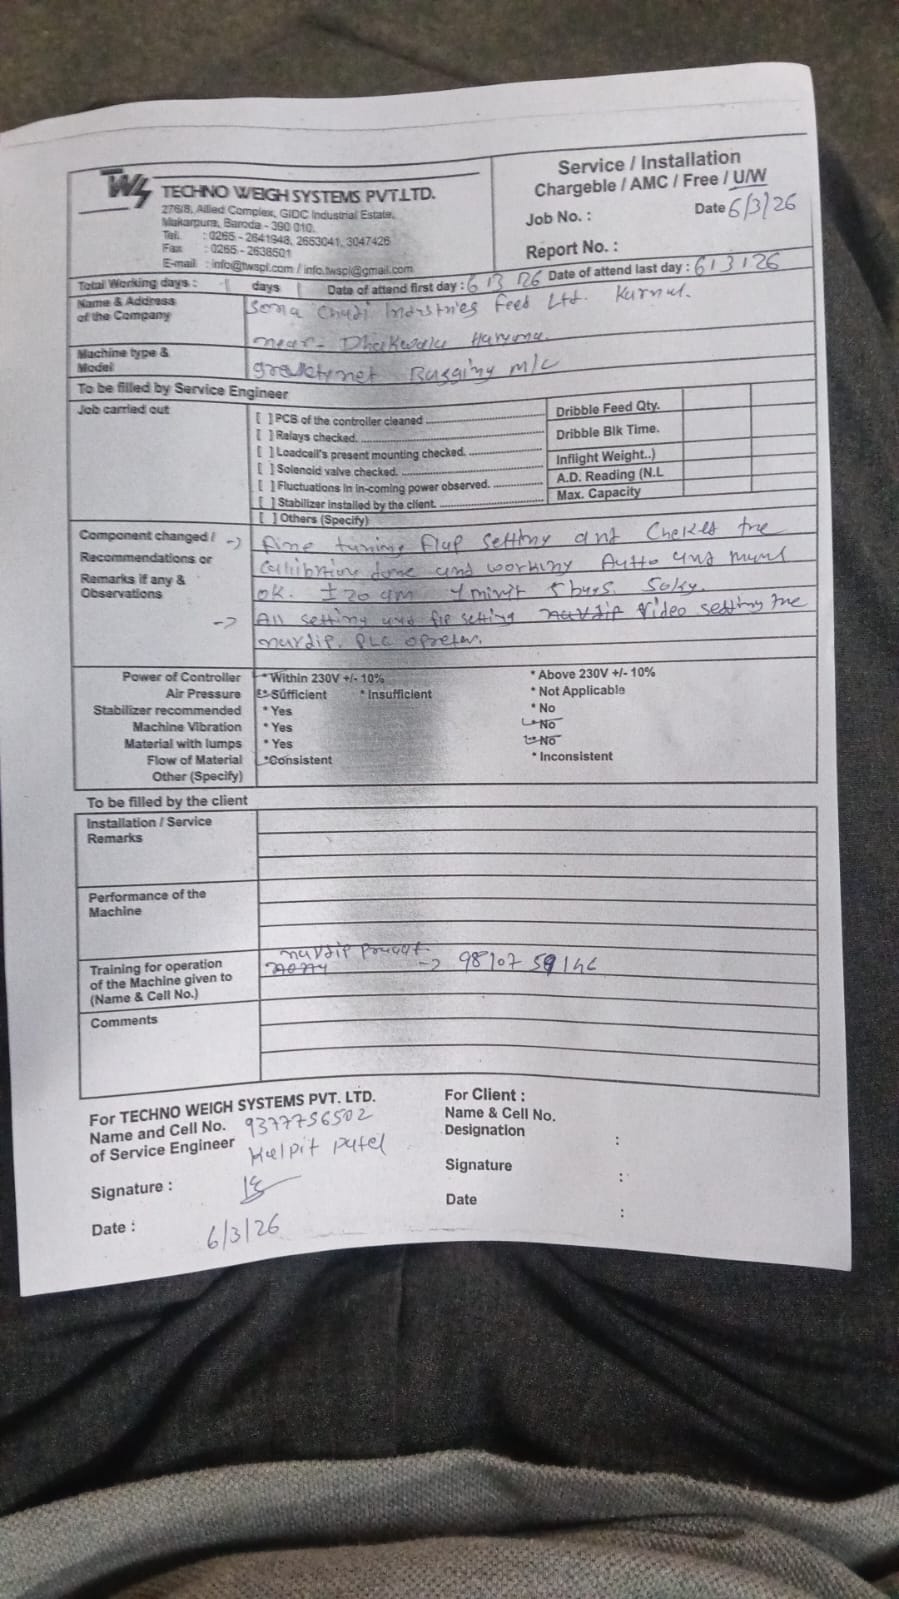 TWS TECHNO WEIGH SYSTEMS PVT.LTD.
276/8, Allied Complex, GIDC Industrial Estate,
Makarpura, Baroda - 390 010.
Tel. : 0265 - 2641948, 2653041, 3047426
Fax : 0265 - 2638501
E-mail : info@twspl.com / info.twspl@gmail.com
Service / Installation
Chargeable / AMC / Free / U/W
Job No. : Date 6/3/26
Report No. :
Total Working days : 1 days Date of attend first day : 6/3/26 Date of attend last day : 6/3/26
Name & Address
of the Company
Industries Feed Ltd. Karnal.
near-
Machine type &
Model
Bagging m/c
To be filled by Service Engineer
Job carried out
[ ] PCB of the controller cleaned
[ ] Relays checked.
[ ] Loadcell's present mounting checked.
[ ] Solenoid valve checked.
[ ] Fluctuations in in-coming power observed.
[ ] Stabilizer installed by the client.
[ ] Others (Specify)
Dribble Feed Qty.
Dribble Blk Time.
Inflight Weight..)
A.D. Reading (N.L
Max. Capacity
Component changed /
Recommendations or
Remarks if any &
Observations
-> fine tuning flap setting and the
done and working and
ok. ±20 gm 1 minit 5 bags. 50kg.
-> All setting and setting video setting the
navdip. PLC
Power of Controller * Within 230V +/- 10% * Above 230V +/- 10%
Air Pressure * Sufficient * Insufficient * Not Applicable
Stabilizer recommended * Yes * No
Machine Vibration * Yes * No
Material with lumps * Yes * No
Flow of Material * Consistent * Inconsistent
Other (Specify)
To be filled by the client
Installation / Service
Remarks
Performance of the
Machine
Training for operation
of the Machine given to
(Name & Cell No.)
navdip ->
Comments
For TECHNO WEIGH SYSTEMS PVT. LTD.
Name and Cell No. 9377756502
of Service Engineer Kulpit patel
Signature :
Date : 6/3/26
For Client :
Name & Cell No.
Designation :
Signature :
Date :